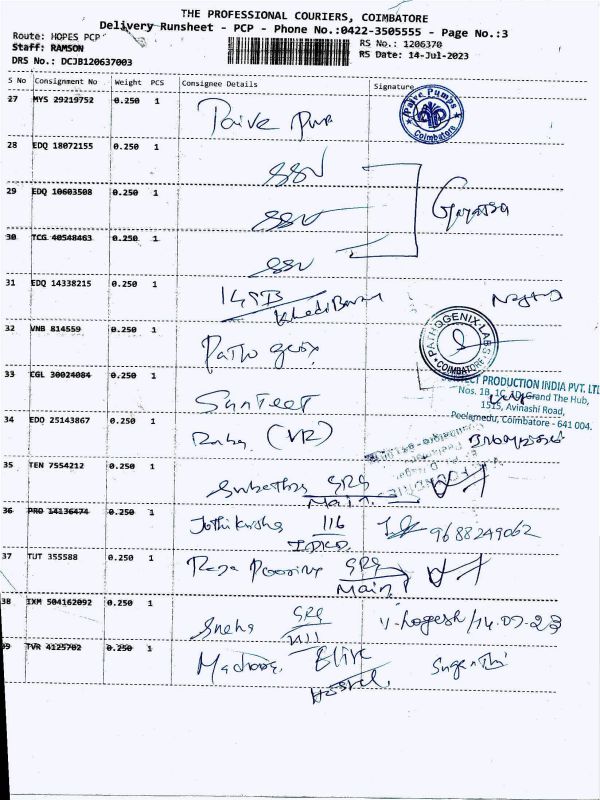 THE PROFESSIONAL COURIERS, COIMBATORE
Delivery Runsheet - PCP - Phone No.:0422-3505555 - Page No.:3
Route: HOPES PCP
RS No.: 1206370
Staff: RAMSON
RS Date: 14-Jul-2023
DRS No.: DCJB120637003
S No Consignment No Weight PCS Consignee Details Signature
27 MYS 29219752 0.250 1 Paive Pump
Paive Pumps
Coimbatore
28 EDQ 18072155 0.250 1 SSV
29 EDQ 10603508 0.250 1 SSV
30 TCG 40548463 0.250 1 SSV
31 EDQ 14338215 0.250 1
32 VNB 814559 0.250 1
PATHOGENIX-LABS
COIMBATORE
33 CGL 30024084 0.250 1 Sunteet
PRODUCTION INDIA PVT. LTD
Nos. 1B, 1C, 1D, Grand The Hub,
1515, Avinashi Road,
Peelamedu, Coimbatore - 641 004.
34 EDQ 25143867 0.250 1 (VR)
35 TEN 7554212 0.250 1 SRG
Main
36 PRO 14136474 0.250 1 116 9688249062
37 TUT 355588 0.250 1 SRG
Main
38 IXM 504162092 0.250 1 Sneha SRG V-Logesh/14-07-23
39 TVR 4125702 0.250 1 Elite Suganthi
Hostel